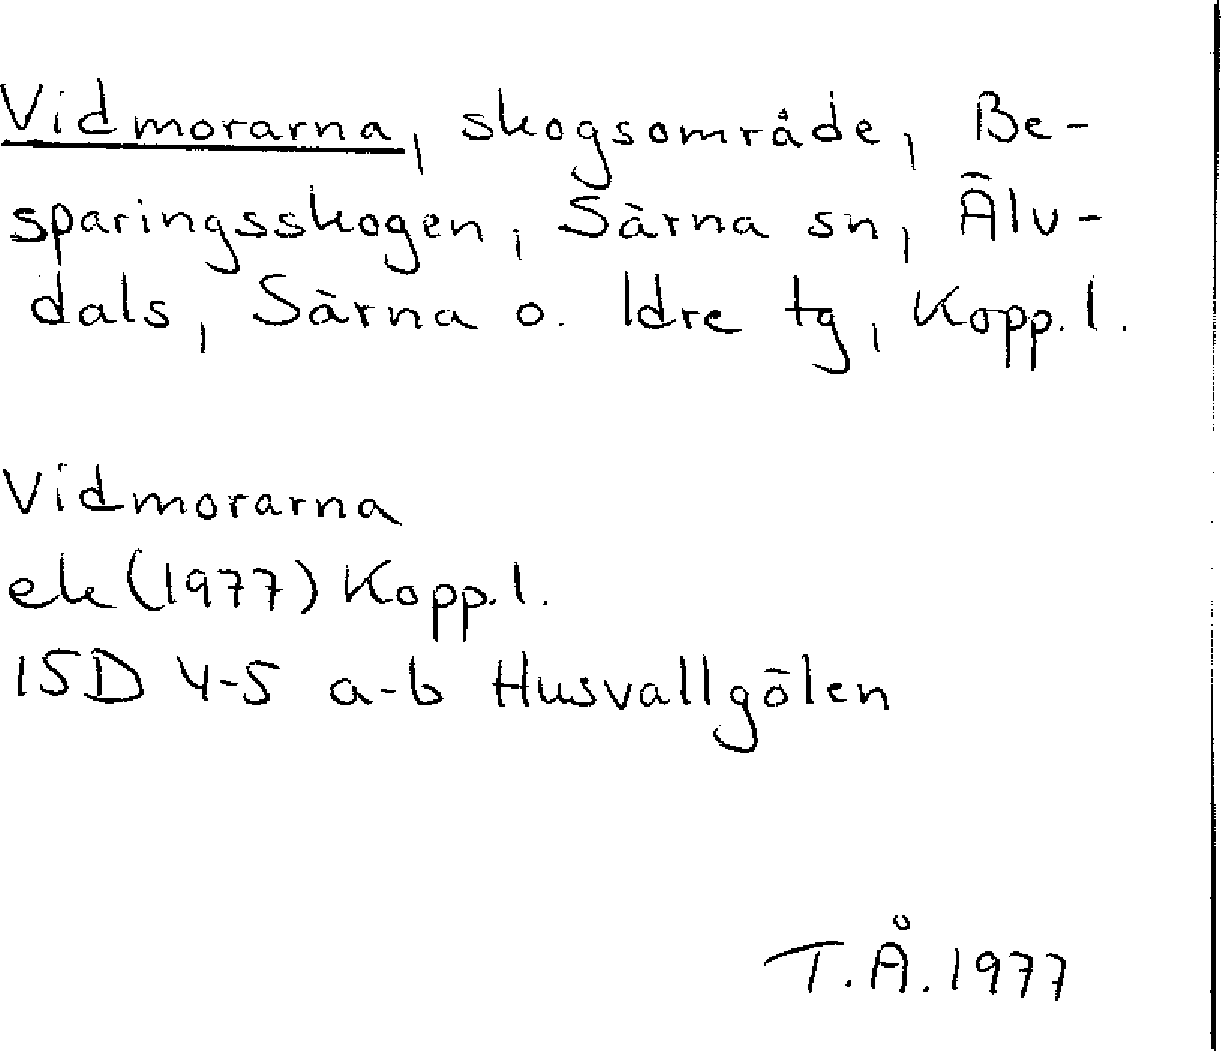 Vidmorarna, skogsområde, Be-
sparingsskogen, Särna sn, Älv-
dals, Särna o. Idre tg, Kopp. l.
Vidmorarna
ek (1977) Kopp. l.
15D 4-5 a-b Husvallgölen
T.Å. 1977